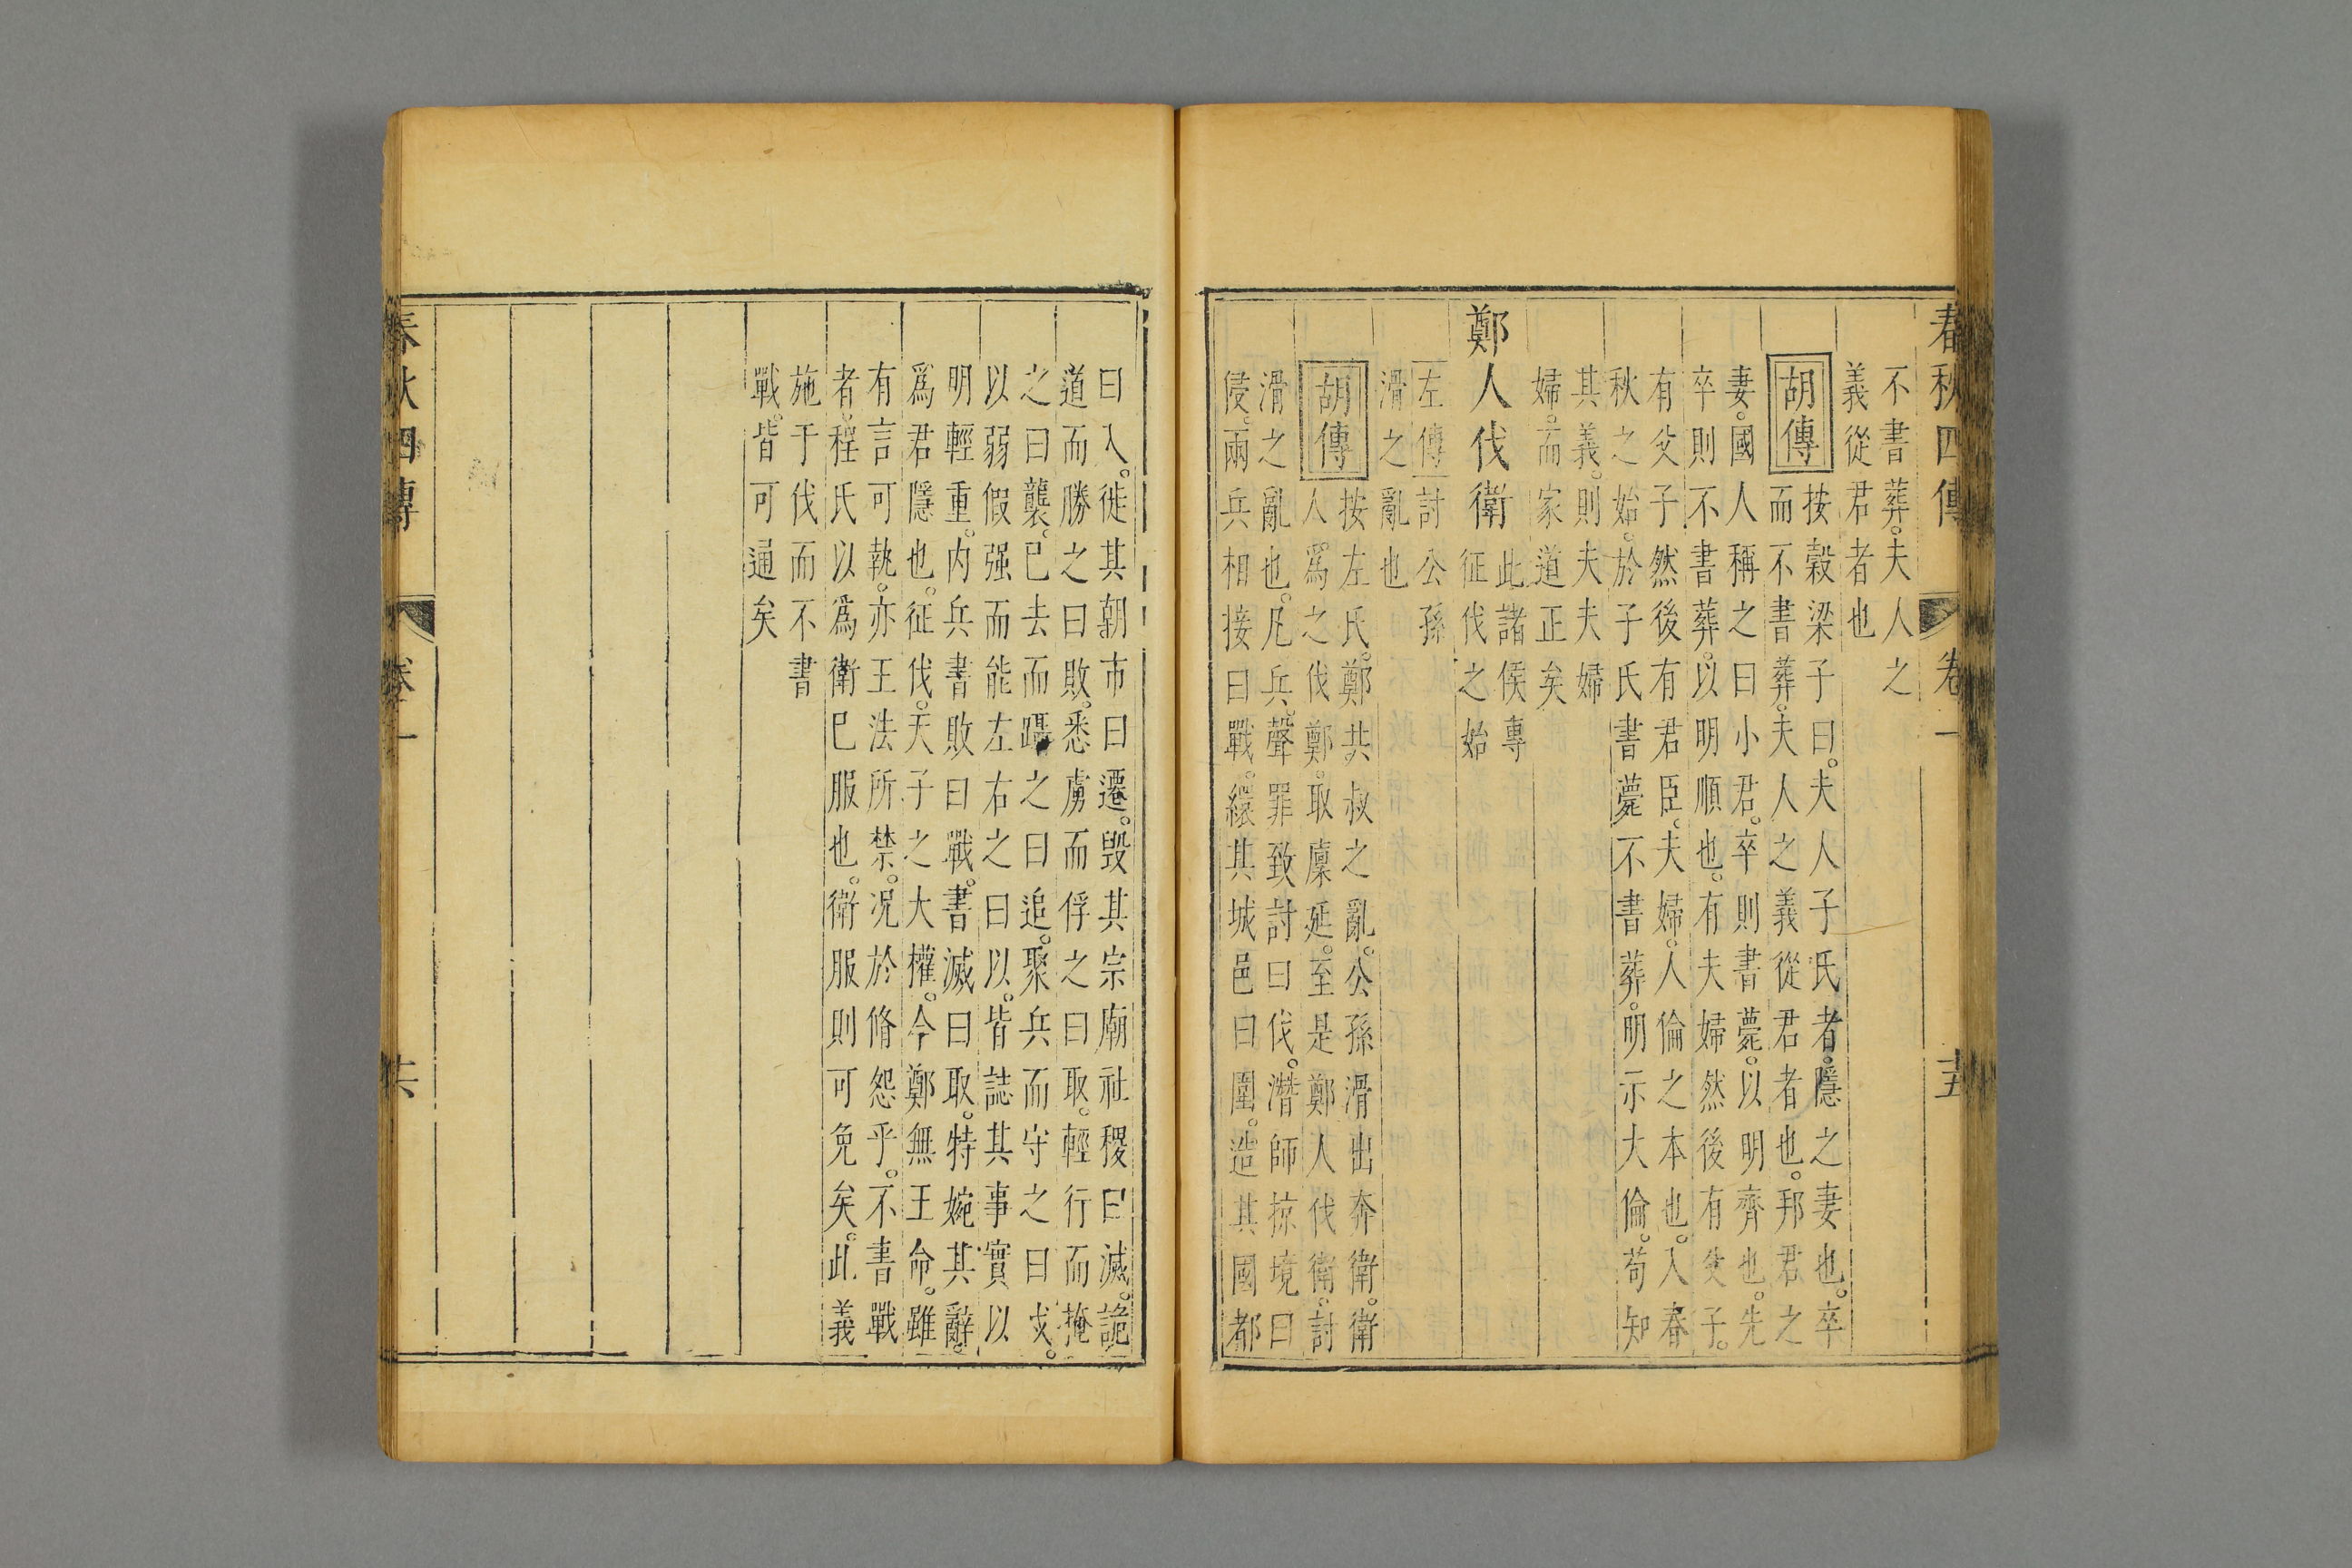 春秋四傳 卷一 十五
不書葬。夫人之
義從君者也
胡傳 按穀梁子曰。夫人子氏者。隱之妻也。卒
而不書葬。夫人之義從君者也。邦君之
妻。國人稱之曰小君。卒則書薨。以明齊也。先
卒則不書葬。以明順也。有夫婦然後有父子。
有父子然後有君臣。夫婦。人倫之本也。入春
秋之始。於子氏書薨不書葬。明示大倫。苟知
其義。則夫夫婦
婦。而家道正矣
鄭人伐衛 此諸侯專
征伐之始
左傳 討公孫
滑之亂也
胡傳 按左氏。鄭共叔之亂。公孫滑出奔衛。衛
人爲之伐鄭。取廩延。至是鄭人伐衛。討
滑之亂也。凡兵。聲罪致討曰伐。潛師掠境曰
侵。兩兵相接曰戰。繯其城邑曰圍。造其國都
曰入。徙其朝市曰遷。毀其宗廟社稷曰滅。詭
道而勝之曰敗。悉虜而俘之曰取。輕行而掩
之曰襲。已去而躡之曰追。聚兵而守之曰戍。
以弱假强而能左右之曰以。皆誌其事實以
明輕重。内兵書敗曰戰。書滅曰取。特婉其辭。
爲君隱也。征伐。天子之大權。今鄭無王命。雖
有言可執。亦王法所禁。况於脩怨乎。不書戰
者。程氏以爲衛已服也。衛服則可免矣。此義
施于伐而不書
戰。皆可通矣
春秋四傳 卷一 十六